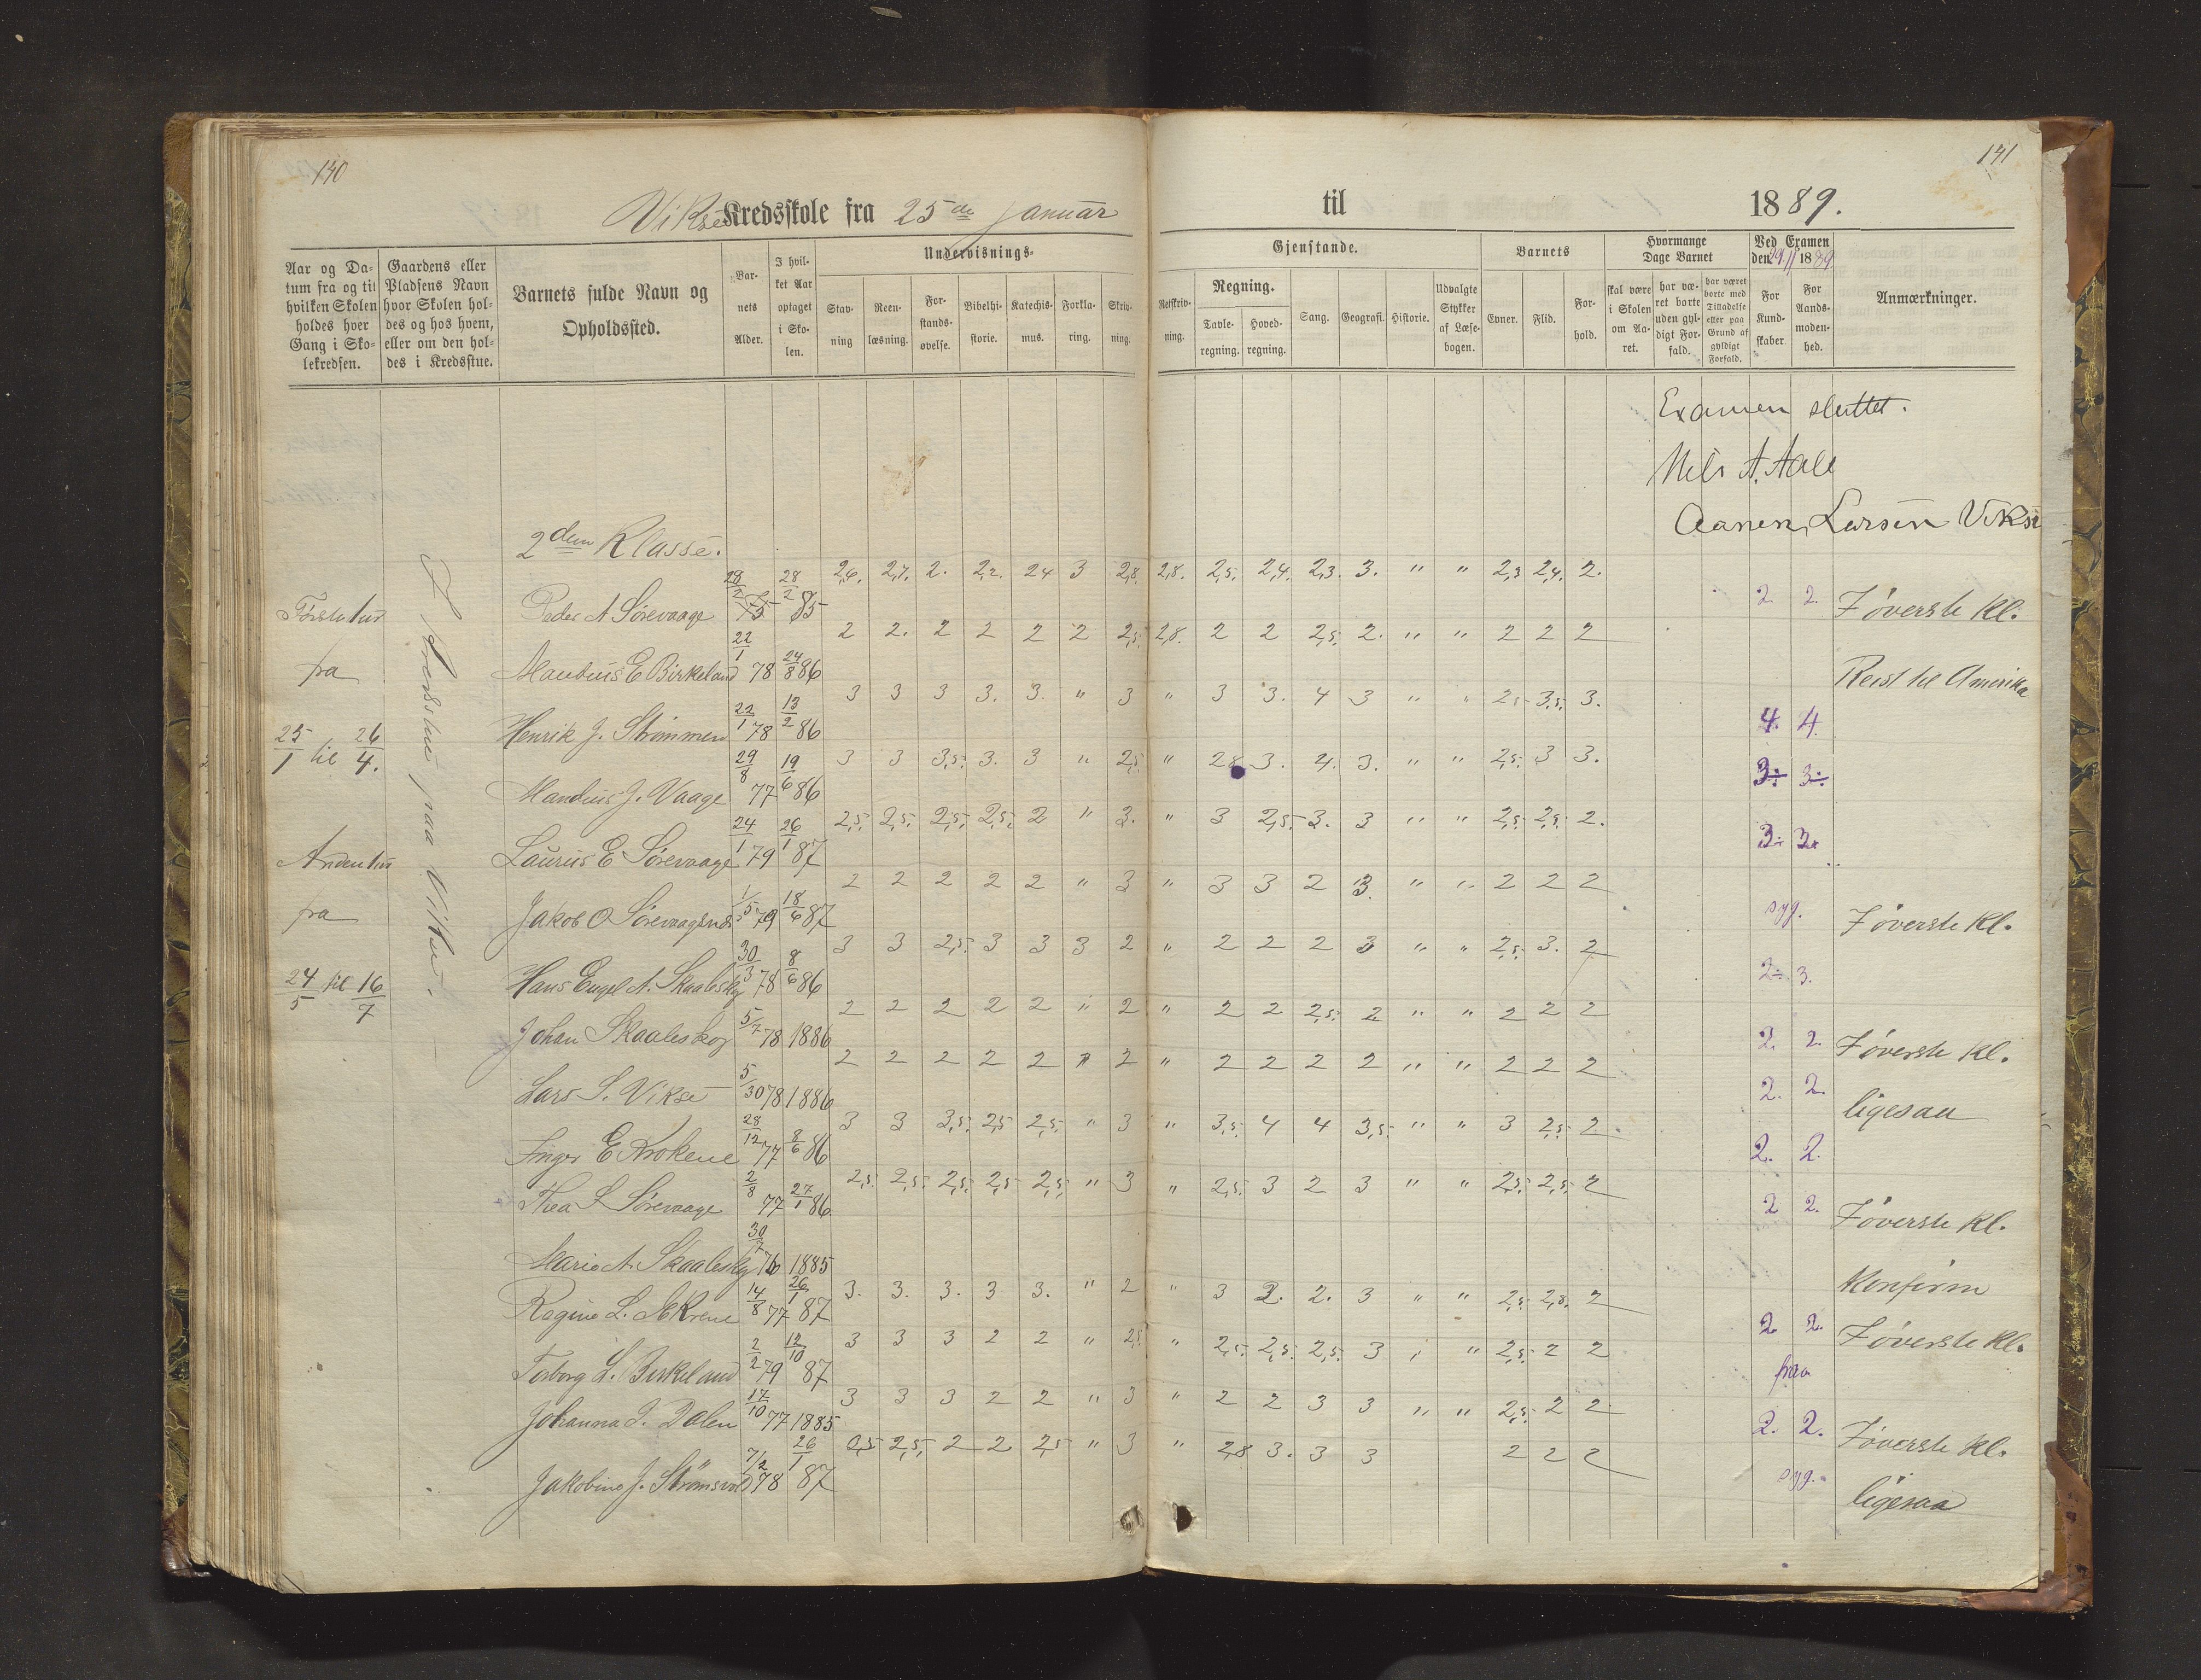 140
141
Vikse Kredsskole fra 25de Januar til 1889.
Aar og Datum fra og til hvilken Skolen holdes hver Gang i Skolekredsen.
Gaardens eller Pladsens Navn hvor Skolen holdes og hos hvem, eller om den holdes i Kredsstue.
Barnets fulde Navn og Opholdssted.
Barnets Alder.
I hvilket Aar optaget i Skolen.
Undervisnings-
Stavning
Reenlæsning.
Forstandsøvelse.
Bibelhistorie.
Katechismus.
Forklaring.
Skrivning.
Gjenstande.
Retskrivning.
Regning.
Tavleregning.
Hovedregning.
Sang.
Geografi.
Historie.
Udvalgte Stykker af Læsebogen.
Barnets
Evner.
Flid.
Forhold.
Hvormange Dage Barnet
skal være i Skolen om Aaret.
har været borte uden gyldigt Forfald.
har været borte med Tilladelse eller paa Grund af gyldigt Forfald.
Ved Examen den 29/11 1889
For Kundskaber
For Aandsmodenhed.
Anmærkninger.
Examen sluttet.
Nils A. Aale
Aanen Larsen Vikse
2den Klasse.
Første tur
fra
25/1 til 26/4.
Anden tur
fra
24/5 til 16/7
Peder A Sørevaage 28/2 75 28/2 85 2,6. 2,7. 2. 2,2. 24 3 2,8. 2,8. 2,5. 2,4. 2,3. 3. " " 2,3 2,4. 2. 2. 2. I øverste Kl.
Mandius E Birkeland 22/1 78 24/8 86 2 2. 2 2 2 2 2,5. 2,8. 2 2 2,5. 2. " " 2 2 2 Reist til Amerika
Henrik J. Strømmen 22/1 78 13/2 86 3 3 3 3. 3. " 3 " 3 3. 4 3 " " 2,5 3,5. 3. 4. 4.
Mandius J. Vaage 29/8 77 19/6 86 3 3 3,5. 3. 3 " 2,5. " 28 3. 4. 3. " " 2,5. 3 3. 3÷ 3÷
Laurus E Sørevaage 24/1 79 26/1 87 2,5. 2,5. 2,5. 2,5. 2 " 3. " 3 2,5. 3. 3 " " 2,5. 2,5. 2. 3÷ 3.
Jakob O Sørevaagsnes 1/5 79 18/6 87 2 2 2 2 2 " 3 " 3 3 2 3. " " 2 2 2 syg. I øverste Kl.
Hans Engel A. Skaaleskog 30/3 78 8/6 86 3 3 2,5. 3 3 3 2 " 2 2 2 3 " " 2,5. 3. 2 2÷ 3.
Johan Skaaleskog 5/7 78 1886 2 2 2 2 2 " 2 " 2 2 2,5. 2 " " 2 2 2 2. 2. I øverste Kl.
Lars S. Vikse 5/30 78 1886 2 2 2 2 2 " 2 " 2 2 2 2 " " 2 2 2 2. 2. ligesaa
Inger E Krokene 28/12 77 8/6 86 3 3 3,5. 2,5 2,5. " 3 " 3,5. 4 4 3,5. " " 3 2,5. 2. 2. 2.
Thea S Sørevaage 2/8 77 27/1 86 2,5. 2,5. 2,5. 2,5 2,5. " 3 " 2,5. 3 2 3 " " 2,5. 2,5. 2 2 2. I øverste Kl.
Marie A. Skaaleskog 30/7 76 1885 Konfirm
Regine L. Aakrene 14/8 77 26/1 87 3. 3. 3. 3 3. " 2 " 3 2. 2. 3 " " 2,5. 2,8. 2 2. 2. I øverste Kl.
Torborg L. Birkeland 2/2 79 12/10 87 3 3 3 2 2 " 2,5. " 2,5. 2,5. 2,5. 3 " " 2,5. 2 2 fra
Johanna L. Dalen 17/10 77 1885 3 3 3 2 2 " 3 " 2 2 3 3 " " 2,5. 2 2 2. 2. I øverste Kl.
Jakobine J. Strømsvold 7/2 78 26/1 87 2,5 2,5. 2 2 2,5 " 3 " 2,8 3. 3 3 2 2 2 syg. ligesaa